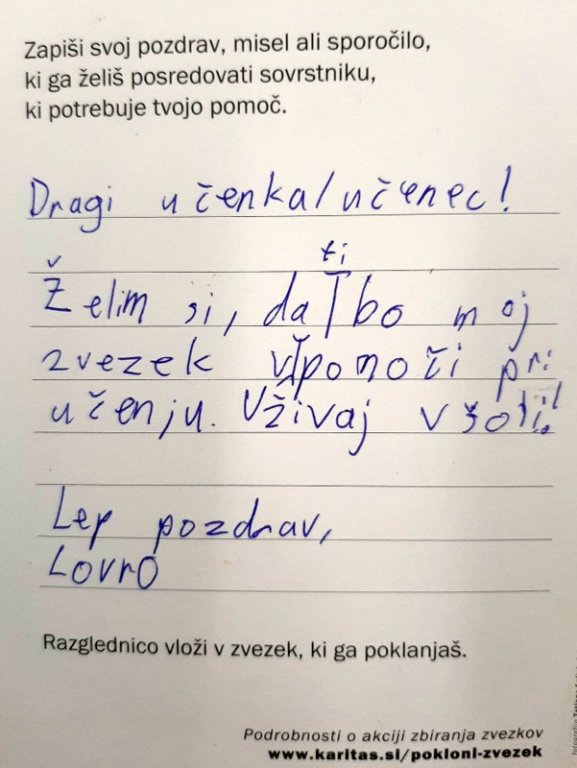 Zapiši svoj pozdrav, misel ali sporočilo,
ki ga želiš posredovati sovrstniku,
ki potrebuje tvojo pomoč.
Dragi učenka/učenec!
Želim si, da ti bo moj
zvezek v pomoči pri
učenju. Uživaj v šoli!
Lep pozdrav,
Lovro
Razglednico vloži v zvezek, ki ga poklanjaš.
Podrobnosti o akciji zbiranja zvezkov
www.karitas.si/pokloni-zvezek